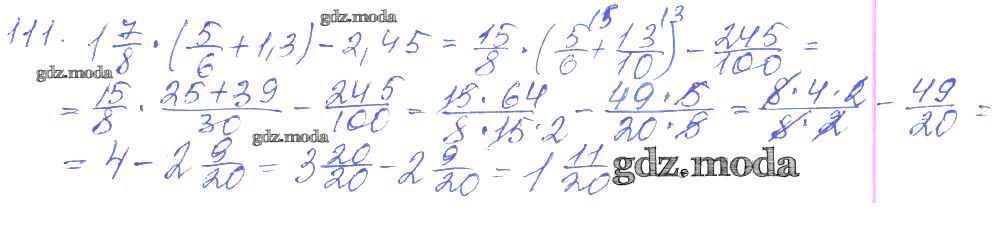 gdz.moda
111. 1 7/8 · (5/6 + 1,3) - 2,45 = 15/8 · (5/6 + 13/10) - 245/100 =
gdz.moda
= 15/8 · 25 + 39/30 - 245/100 = 15 · 64/8 · 15 · 2 - 49 · 5/20 · 5 = 8 · 4 · 2/8 · 2 - 49/20 =
gdz.moda
= 4 - 2 9/20 = 3 20/20 - 2 9/20 = 1 11/20
gdz.moda